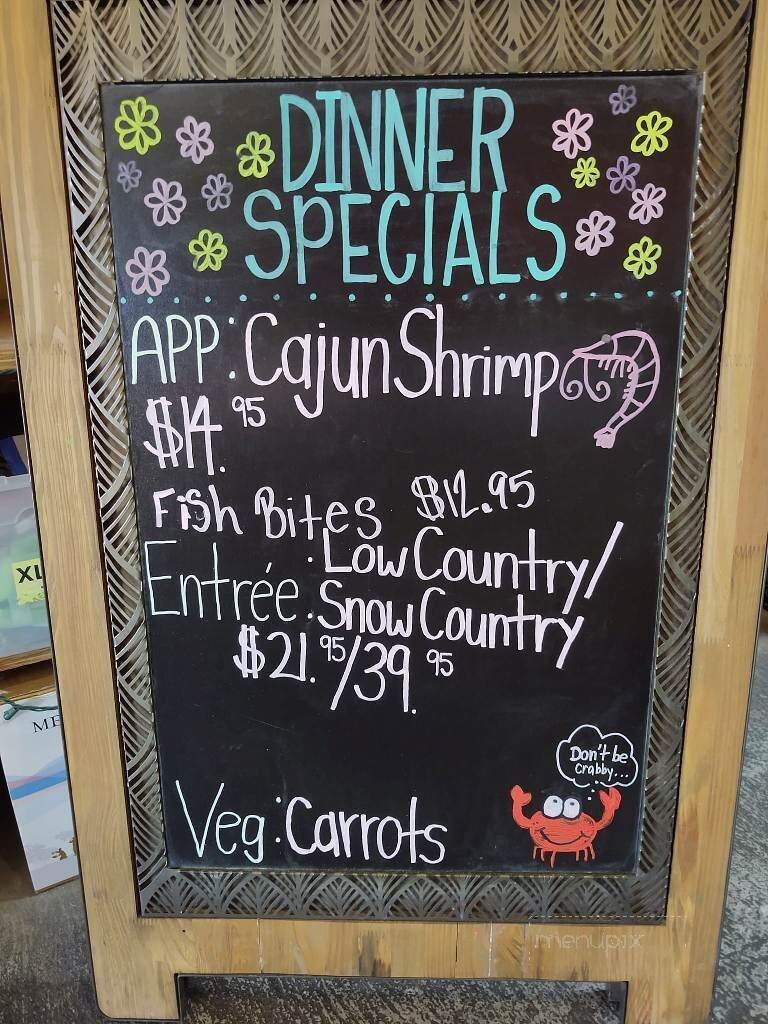 DINNER
SPECIALS
APP: Cajun Shrimp
$14.95
Fish Bites $12.95
Entrée: Low Country/
Snow Country
$21.95/39.95
Don't be
crabby...
Veg: Carrots
XL
ME
menupix